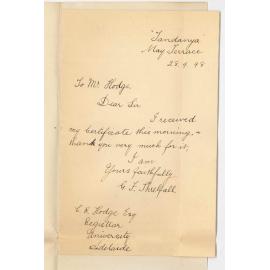 "Tandanya"
May Terrace
28.4.98
To Mr Hodge,
Dear Sir
I received
my Certificate this morning, +
thank you very much for it.
I am
Yours faithfully
G. F. Threlfall
C. R. Hodge Esq
Registrar
University
Adelaide